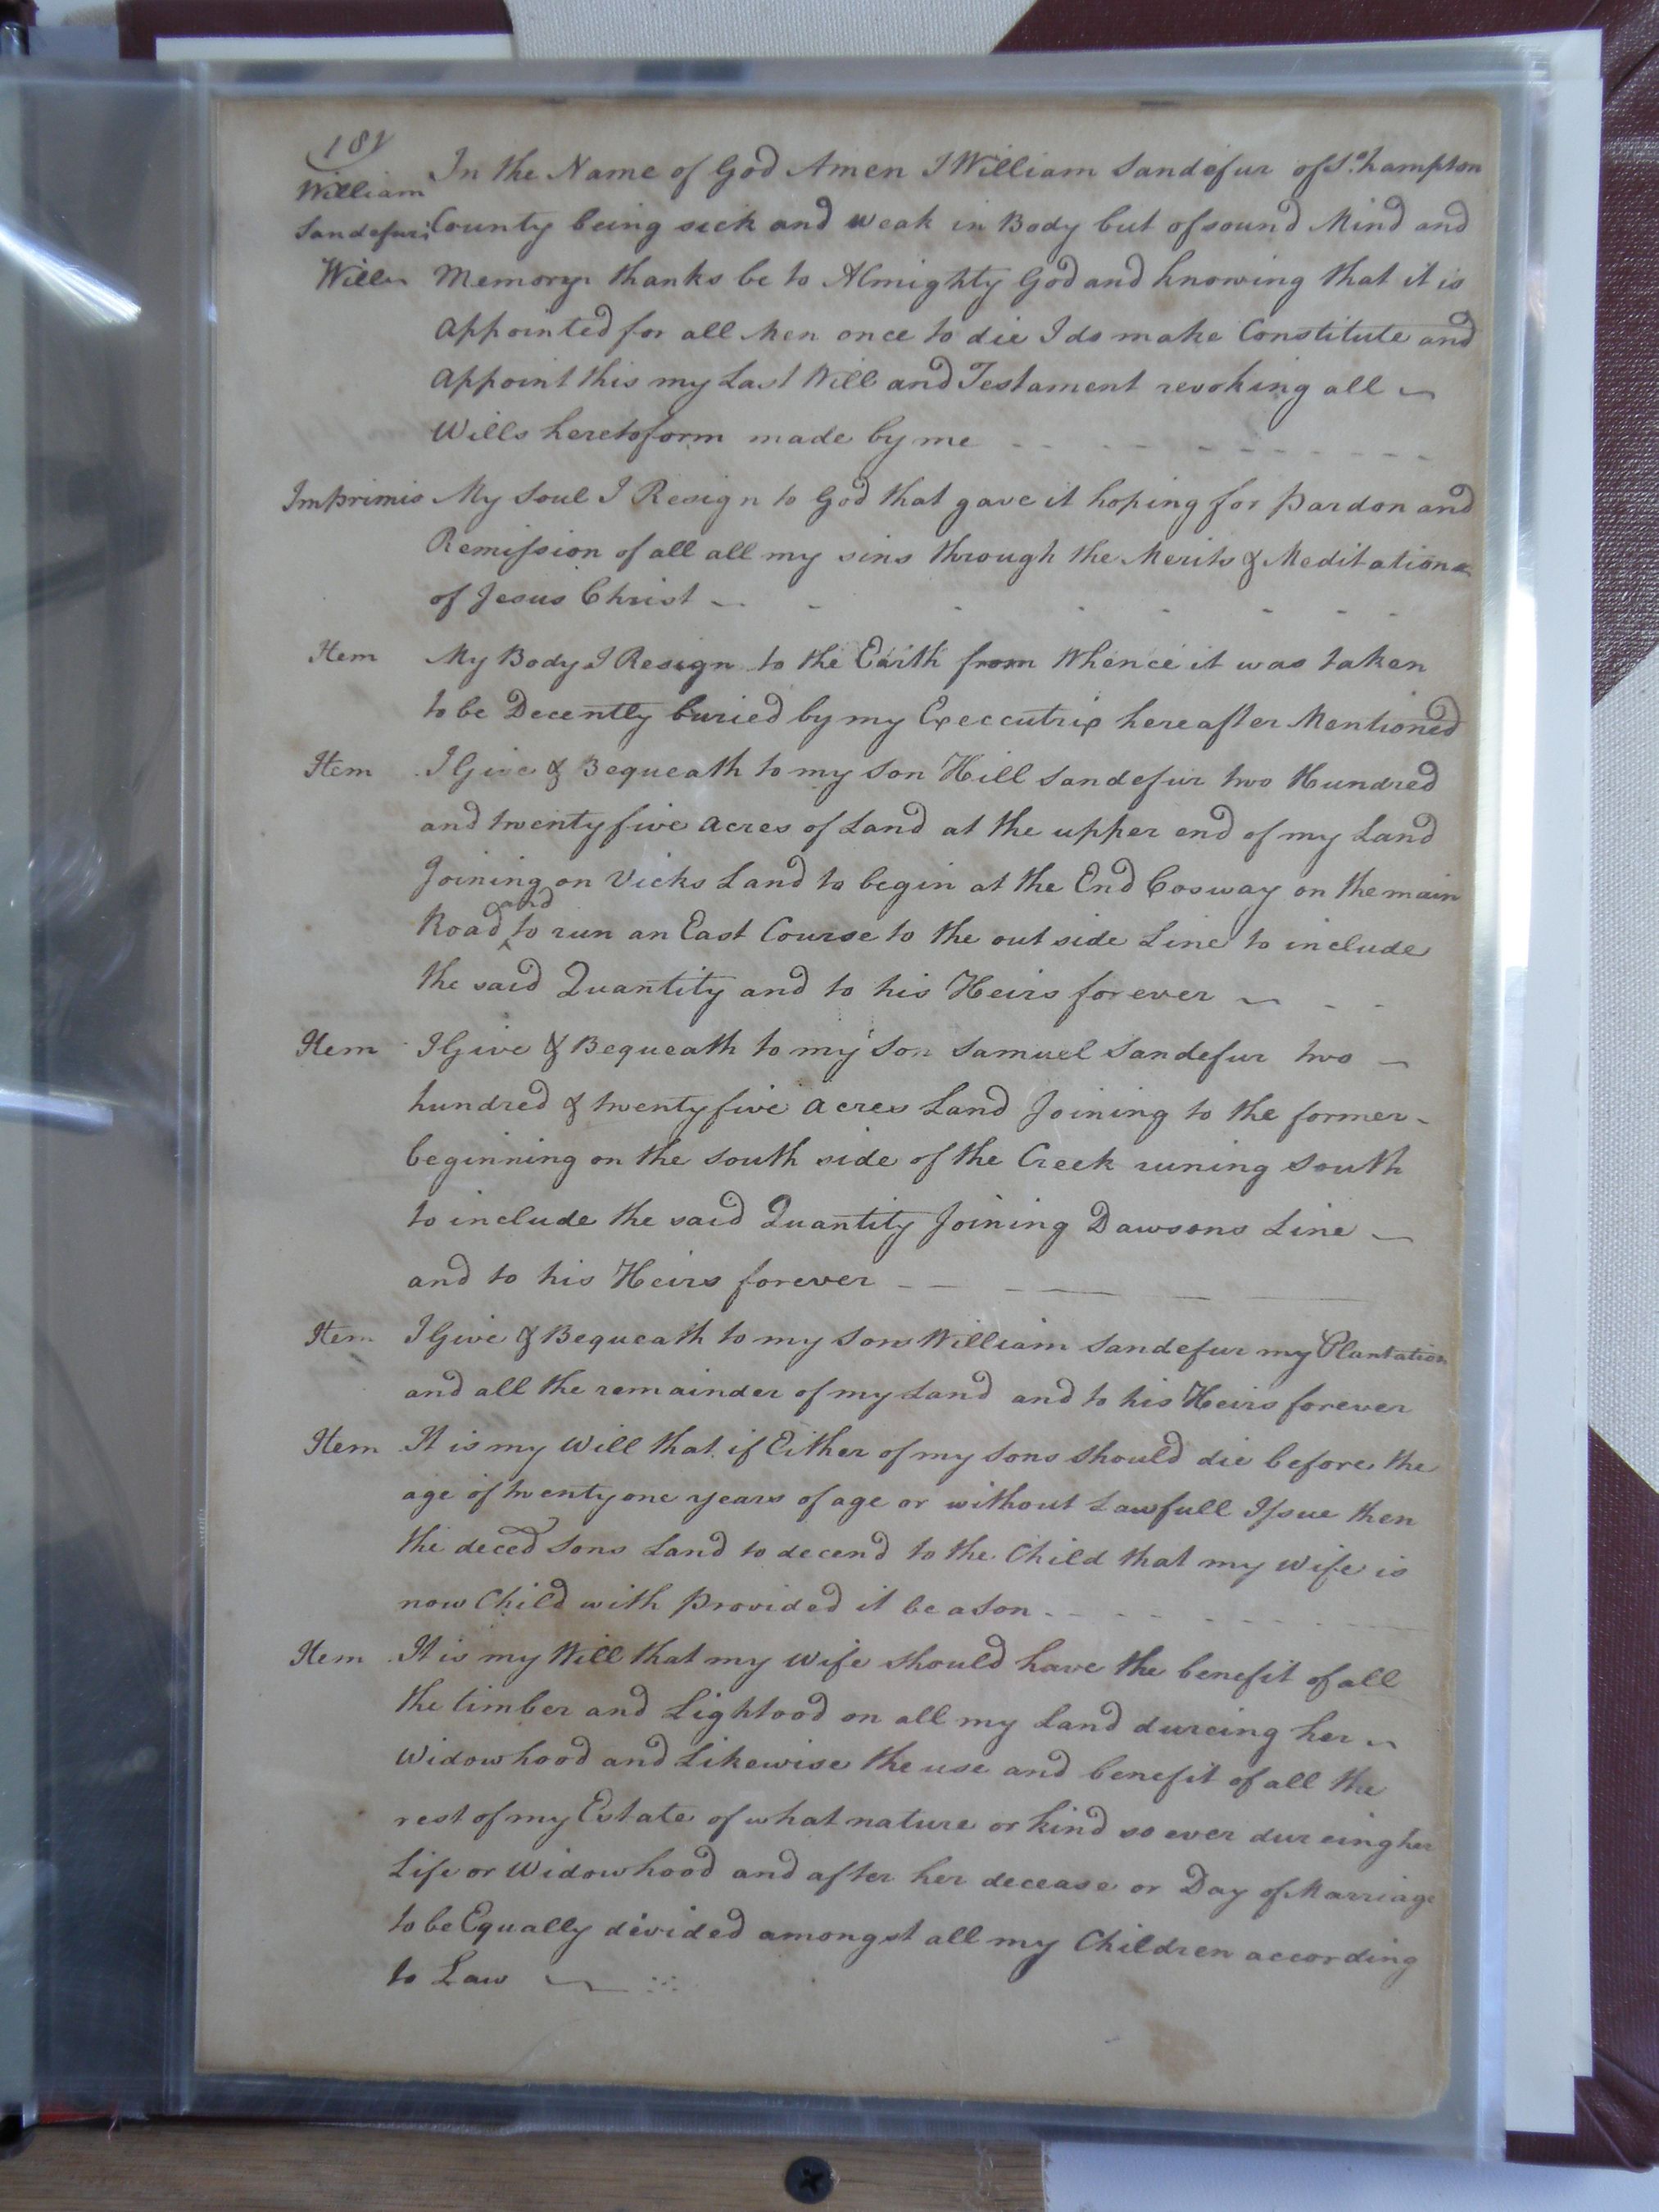 William
Sandefur's
Will
In the Name of God Amen I William Sandefur of So. hampton
County being sick and weak in Body but of sound Mind and
Memory thanks be to Almighty God and knowing that it is
appointed for all Men once to die I do make Constitute and
appoint this my Last Will and Testament revoking all
Wills heretoform made by me
Imprimis My Soul I Resign to God that gave it hoping for pardon and
Remission of all all my sins through the Merits & Meditation
of Jesus Christ
Item My Body I Resign to the Earth from Whence it was taken
to be Decently buried by my Execcutrix hereafter Mentioned
Item I Give & Bequeath to my Son Hill Sandefur two Hundred
and twenty five acres of Land at the upper end of my Land
Joining on Vicks Land to begin at the End Cosway on the main
Road and to run an East Course to the out side Line to include
the said Quantity and to his Heirs forever
Item I Give & Bequeath to my Son Samuel Sandefur two
hundred & twenty five acres Land Joining to the former
beginning on the South side of the Creek runing South
to include the said Quantity Joining Dawsons Line
and to his Heirs forever
Item I Give & Bequeath to my Son William Sandefur my Plantation
and all the remainder of my Land and to his Heirs forever
Item It is my Will that if Either of my Sons should die before the
age of twenty one years of age or without Lawfull Issue then
the deced Sons Land to decend to the Child that my Wife is
now Child with provided it be a Son
Item It is my Will that my Wife should have the benefit of all
the timber and Lightood on all my Land dureing her
Widowhood and Likewise the use and benefit of all the
rest of my Estate of what nature or kind so ever dureing her
Life or Widowhood and after her decease or Day of Marriage
to be Equally divided amongst all my Children according
to Law